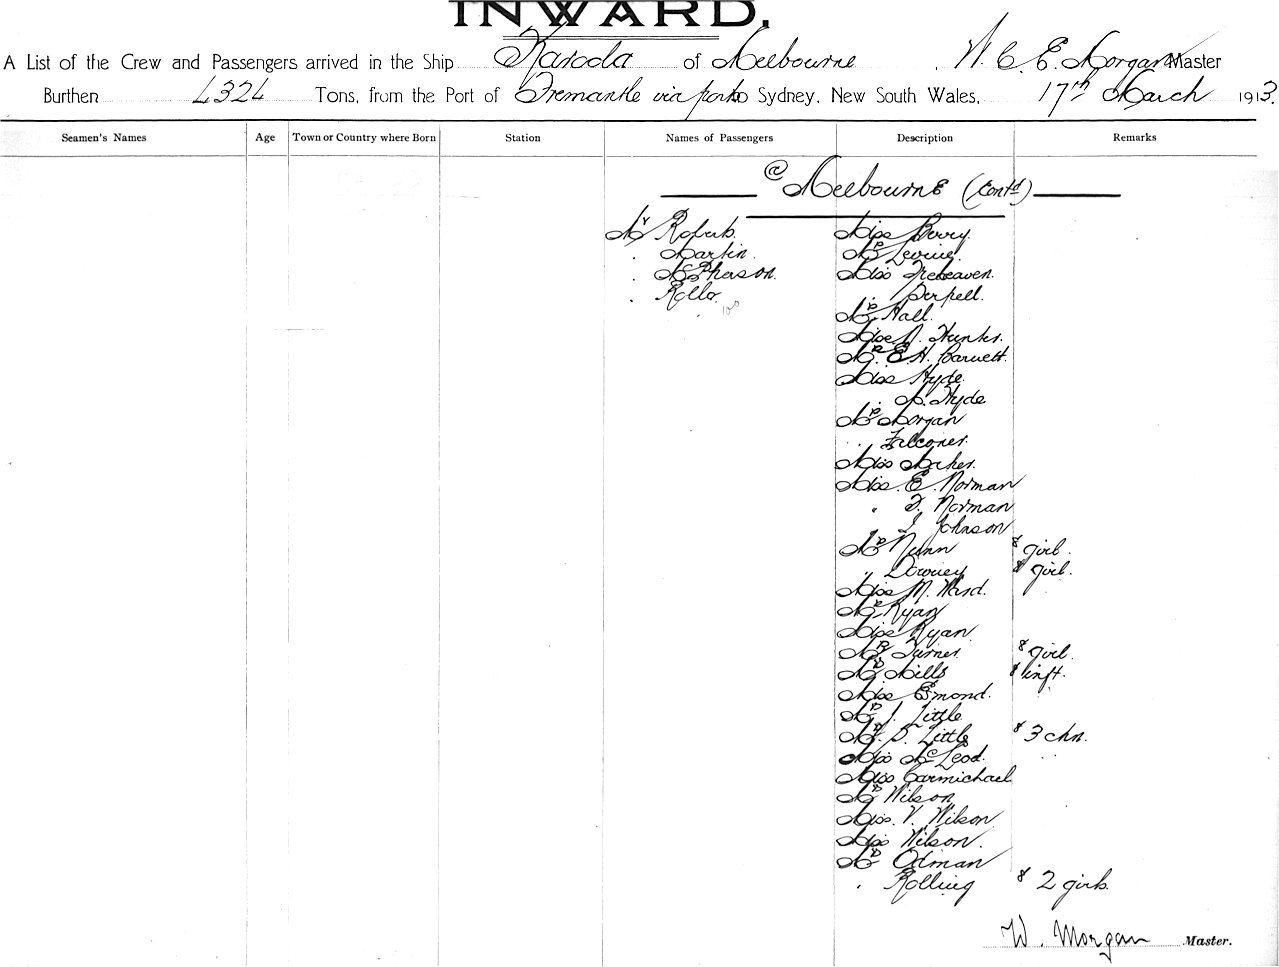 INWARD.
A List of the Crew and Passengers arrived in the Ship Karoola of Melbourne, W. C. E. Morgan Master
Burthen 4324 Tons, from the Port of Fremantle via ports to Sydney, New South Wales, 17th March 1913.
Seamen's Names Age Town or Country where Born Station Names of Passengers Description Remarks
@ Melbourne (Contd)
Mr Roberts. Miss Berry.
. Martin. Mrs Levine.
. McPherson. Miss Treleaven.
. Rollo. . Perpell.
100
Mrs Hall.
Miss Hunks.
Mrs. E. H. Barnett.
Miss Hyde.
. M. Hyde
Mrs Morgan
. Falconer.
Miss Maher.
Miss. E. Norman
" F. Norman
J Johnson
Mrs Nunn & girl.
" Downey & girl.
Miss M. Ward.
Mrs Ryan
Miss Ryan
Mrs Turner & girl.
Mrs Mills & inft.
Miss Esmond.
Mrs J. Little
Mrs. S. Little & 3 chn.
Miss McLeod.
Miss Carmichael
Mrs Wilson
Miss. V. Wilson
Miss Wilson.
Mrs Odman
. Rolling & 2 girls.
W. Morgan Master.